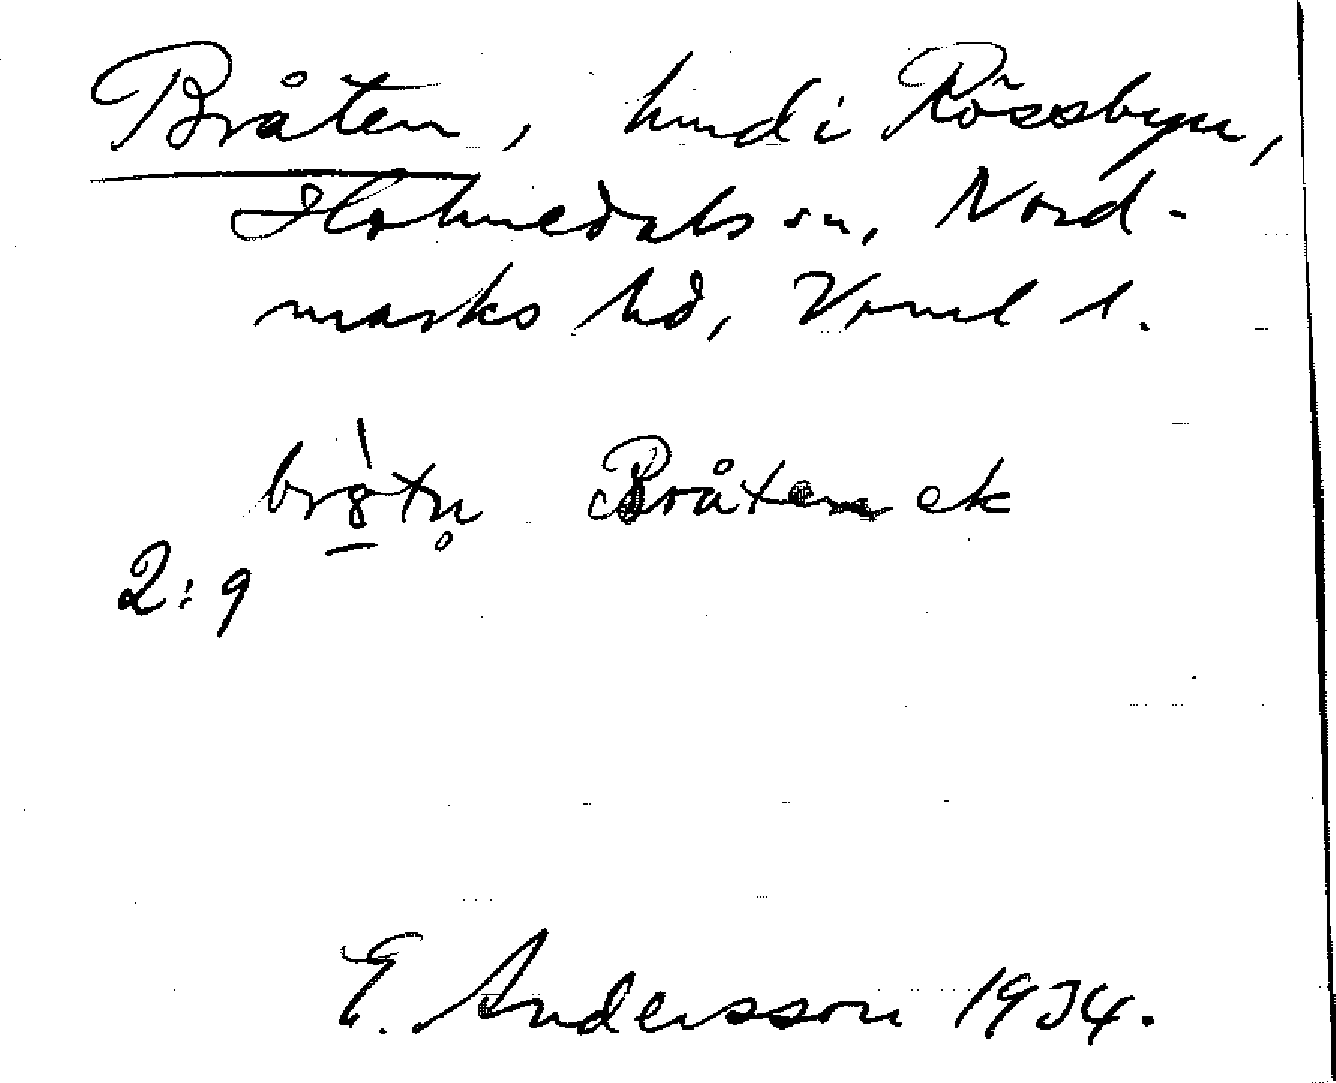 Bråten, hmd i Rössbyn,
Holmedals sn, Nord-
marks hd, Värml l.
Bråten ek
2:9
E. Andersson 1934.